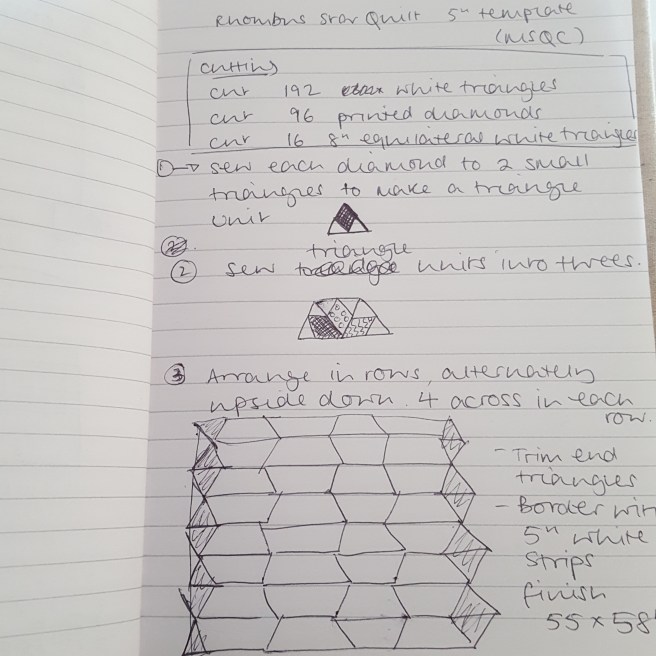 Rhombus Star Quilt 5" template
(MSQC)
Cutting
Cut 192 white triangles
Cut 96 printed diamonds
Cut 16 8" equilateral white triangles
① → sew each diamond to 2 small
triangles to make a triangle
unit
triangle
② sew units into threes.
③ Arrange in rows, alternately
upside down. 4 across in each
row.
- Trim end
triangles
- Border with
5" white
strips
finish
55 x 58"